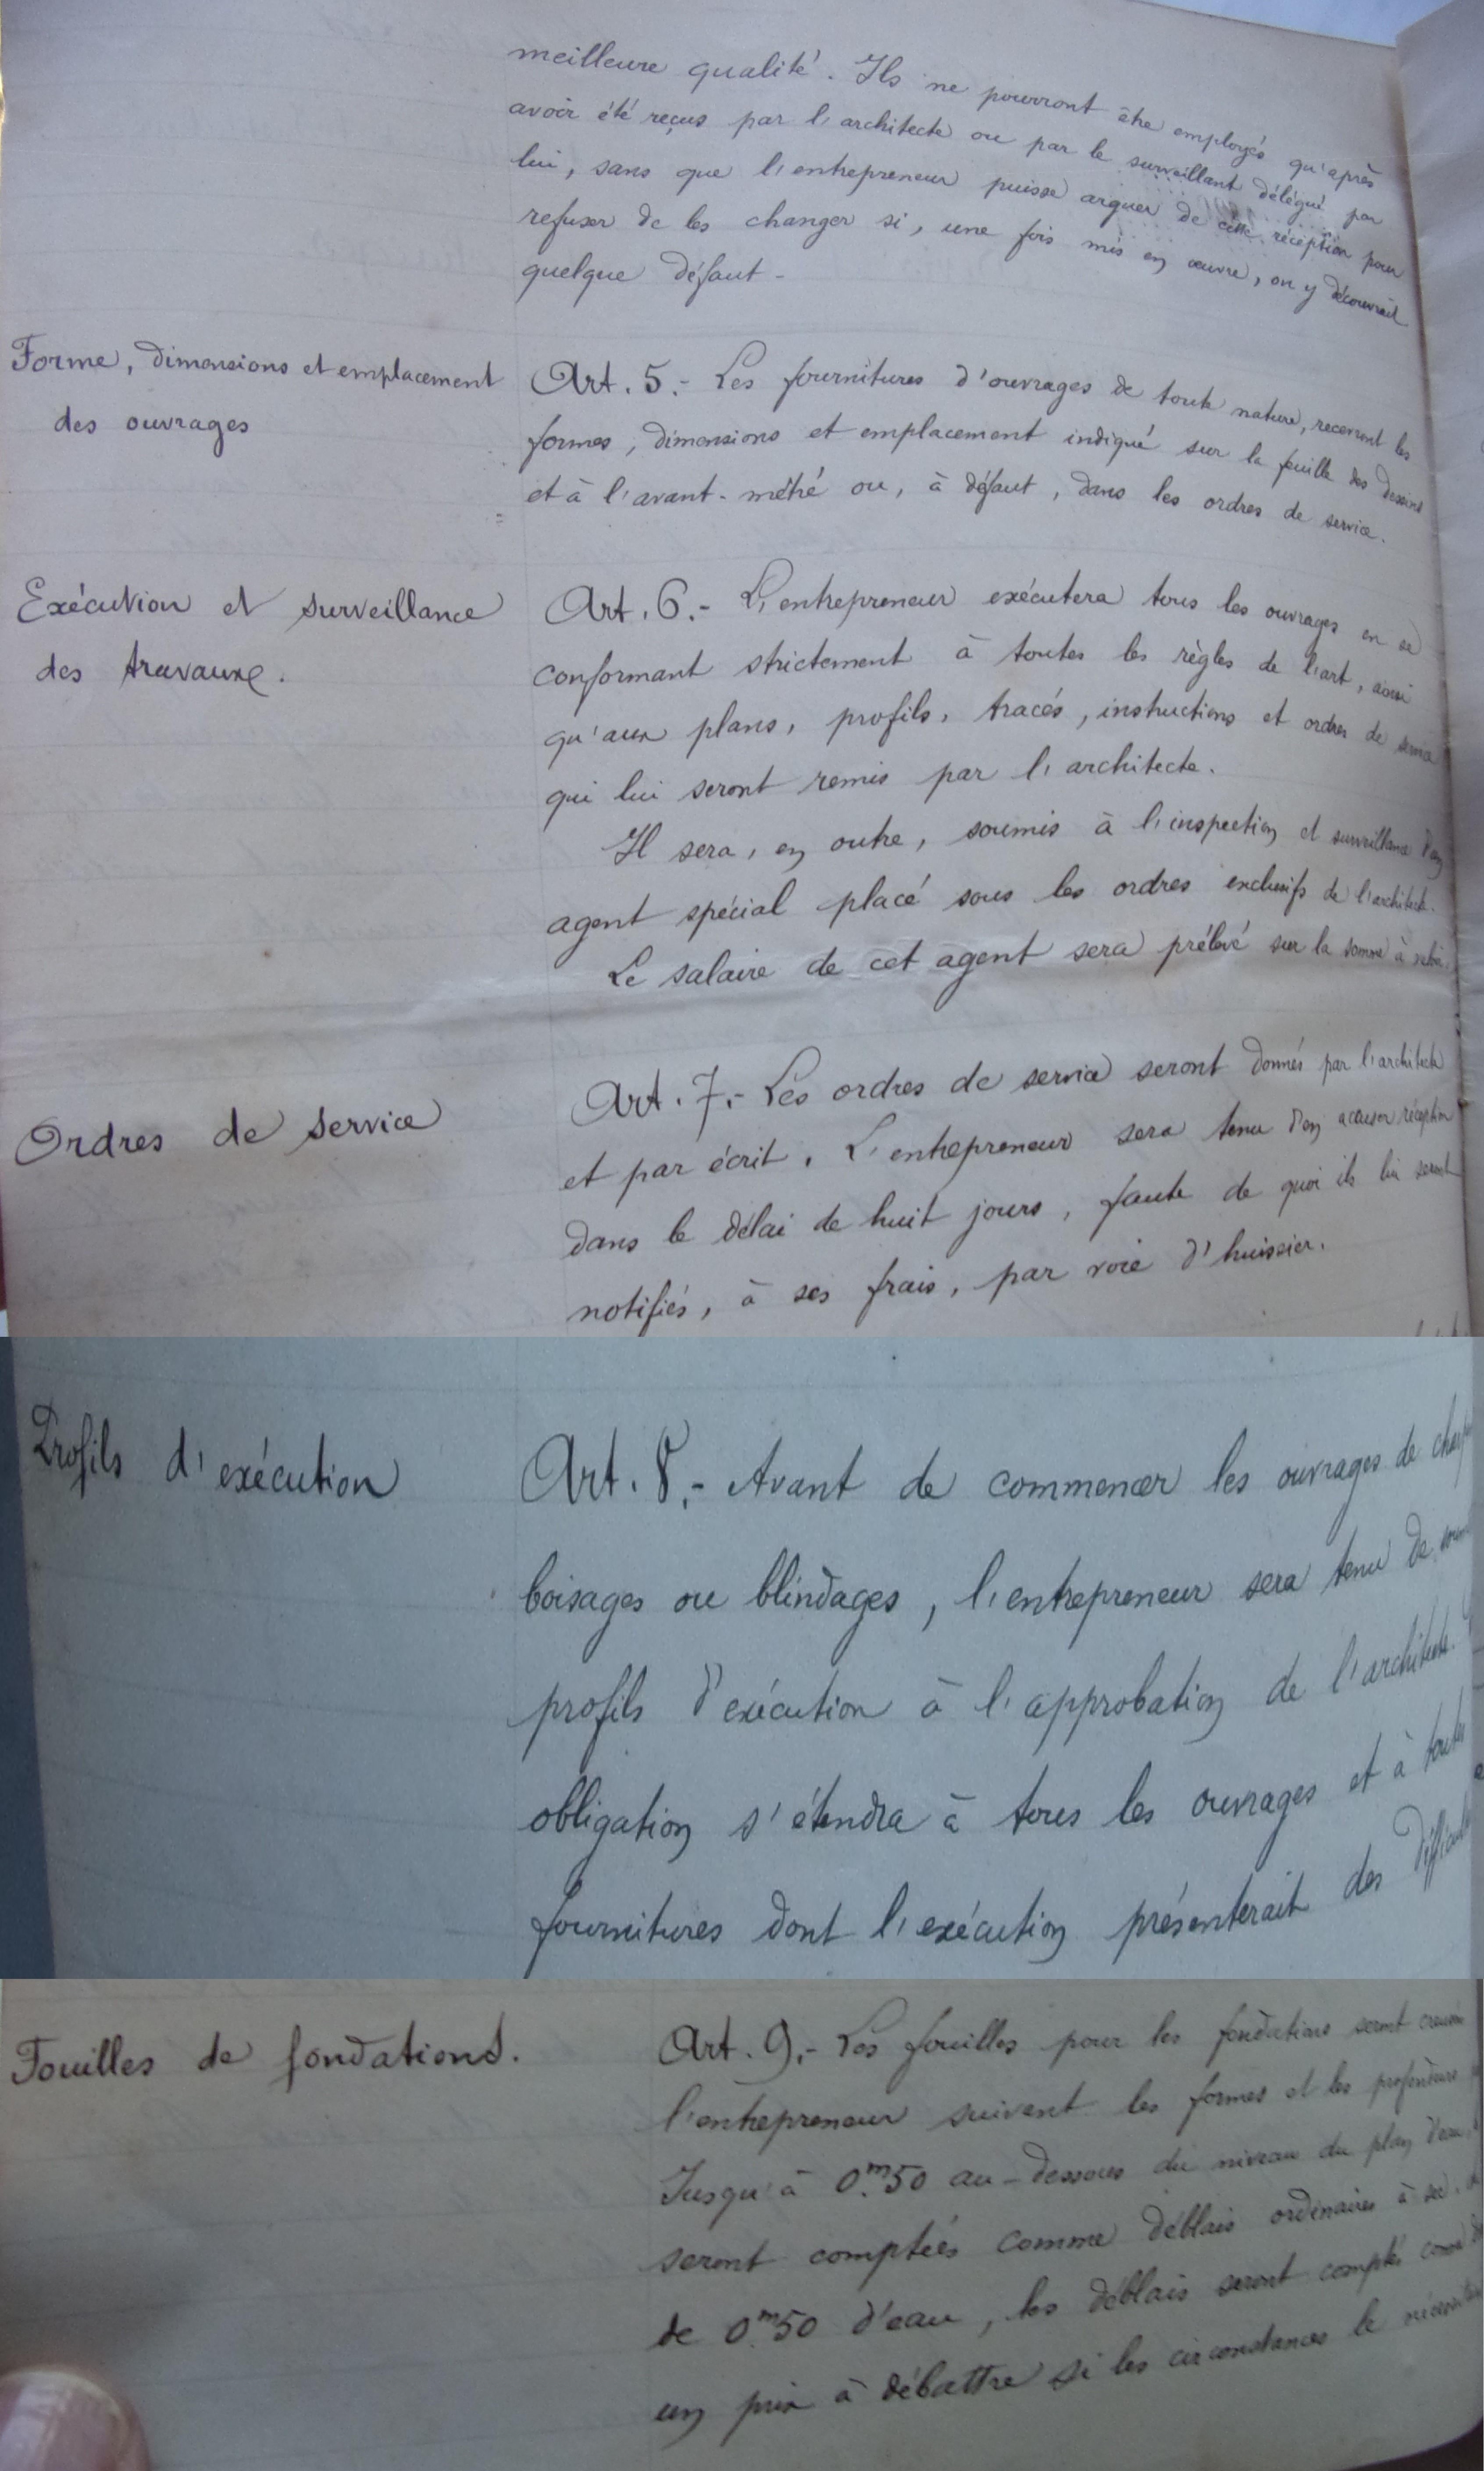 meilleure qualité. Ils ne pourront être employés qu'après
avoir été reçus par l'architecte ou par le surveillant délégué par
lui, sans que l'entrepreneur puisse arguer de cette réception pour
refuser de les changer si, une fois mis en œuvre, on y découvrait
quelque défaut -
Forme, dimensions et emplacement
des ouvrages
Art. 5.- Les fournitures d'ouvrages de toute nature, recevront les
formes, dimensions et emplacement indiqué sur la feuille des dessins
et à l'avant-métré ou, à défaut, dans les ordres de service.
Exécution et surveillance
des travaux.
Art. 6.- L'entrepreneur exécutera tous les ouvrages en se
conformant strictement à toutes les règles de l'art, ainsi
qu'aux plans, profils, tracés, instructions et ordres de service
qui lui seront remis par l'architecte.
Il sera, en outre, soumis à l'inspection et surveillance d'un
agent spécial placé sous les ordres exclusifs de l'architecte.
Le salaire de cet agent sera prélevé sur la somme à
Ordres de service
Art. 7.- Les ordres de service seront donnés par l'architecte
et par écrit. L'entrepreneur sera tenu d'en accuser réception
dans le délai de huit jours, faute de quoi ils lui seront
notifiés, à ses frais, par voie d'huissier.
Profils d'exécution
Art. 8.- Avant de commencer les ouvrages de
boisages ou blindages, l'entrepreneur sera tenu de
profils d'exécution à l'approbation de l'architecte.
obligation s'étendra à tous les ouvrages et à toutes
fournitures dont l'exécution présenterait des
Fouilles de fondations.
Art. 9.- Les fouilles pour les fondations seront
l'entrepreneur suivant les formes et les profondeurs
Jusqu'à 0.m50 au-dessous du niveau du plan d'eau,
seront comptées comme déblais ordinaires à sec.
de 0.m50 d'eau, les déblais seront comptés
un prix à débattre si les circonstances le